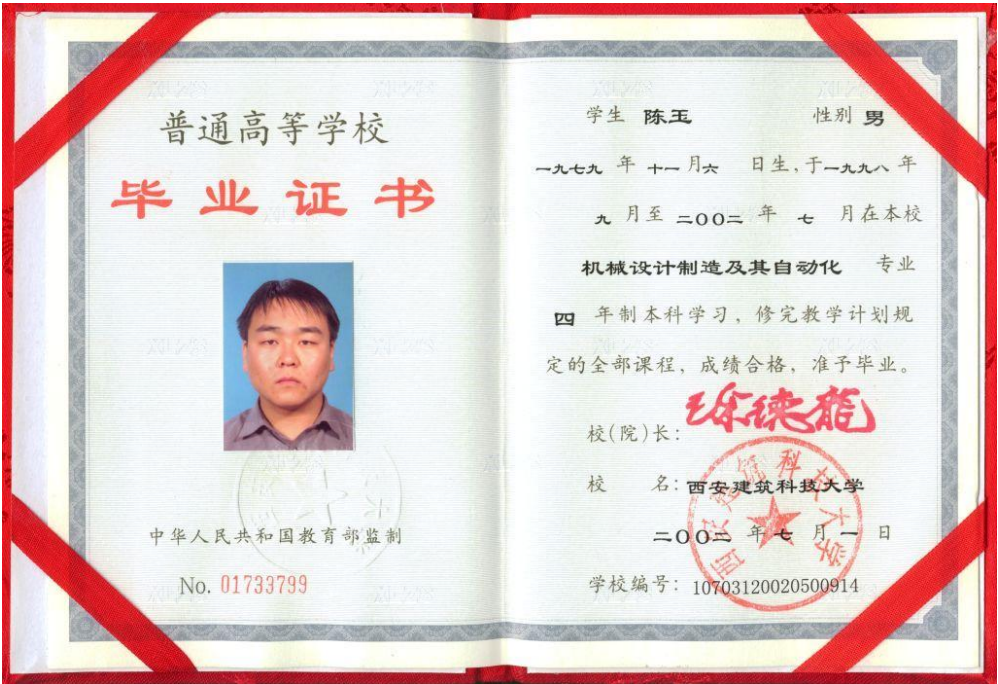 普通高等学校
毕业证书
中华人民共和国教育部监制
No. 01733799
学生 陈玉 性别 男
一九七九 年 十一 月六 日生，于一九九八 年
九 月至 二00二 年 七 月在本校
机械设计制造及其自动化 专业
四 年制本科学习，修完教学计划规
定的全部课程，成绩合格，准予毕业。
校(院)长：
校 名：西安建筑科技大学
二00二 年 七 月 一 日
学校编号：10703120020500914
西安建筑科技大学